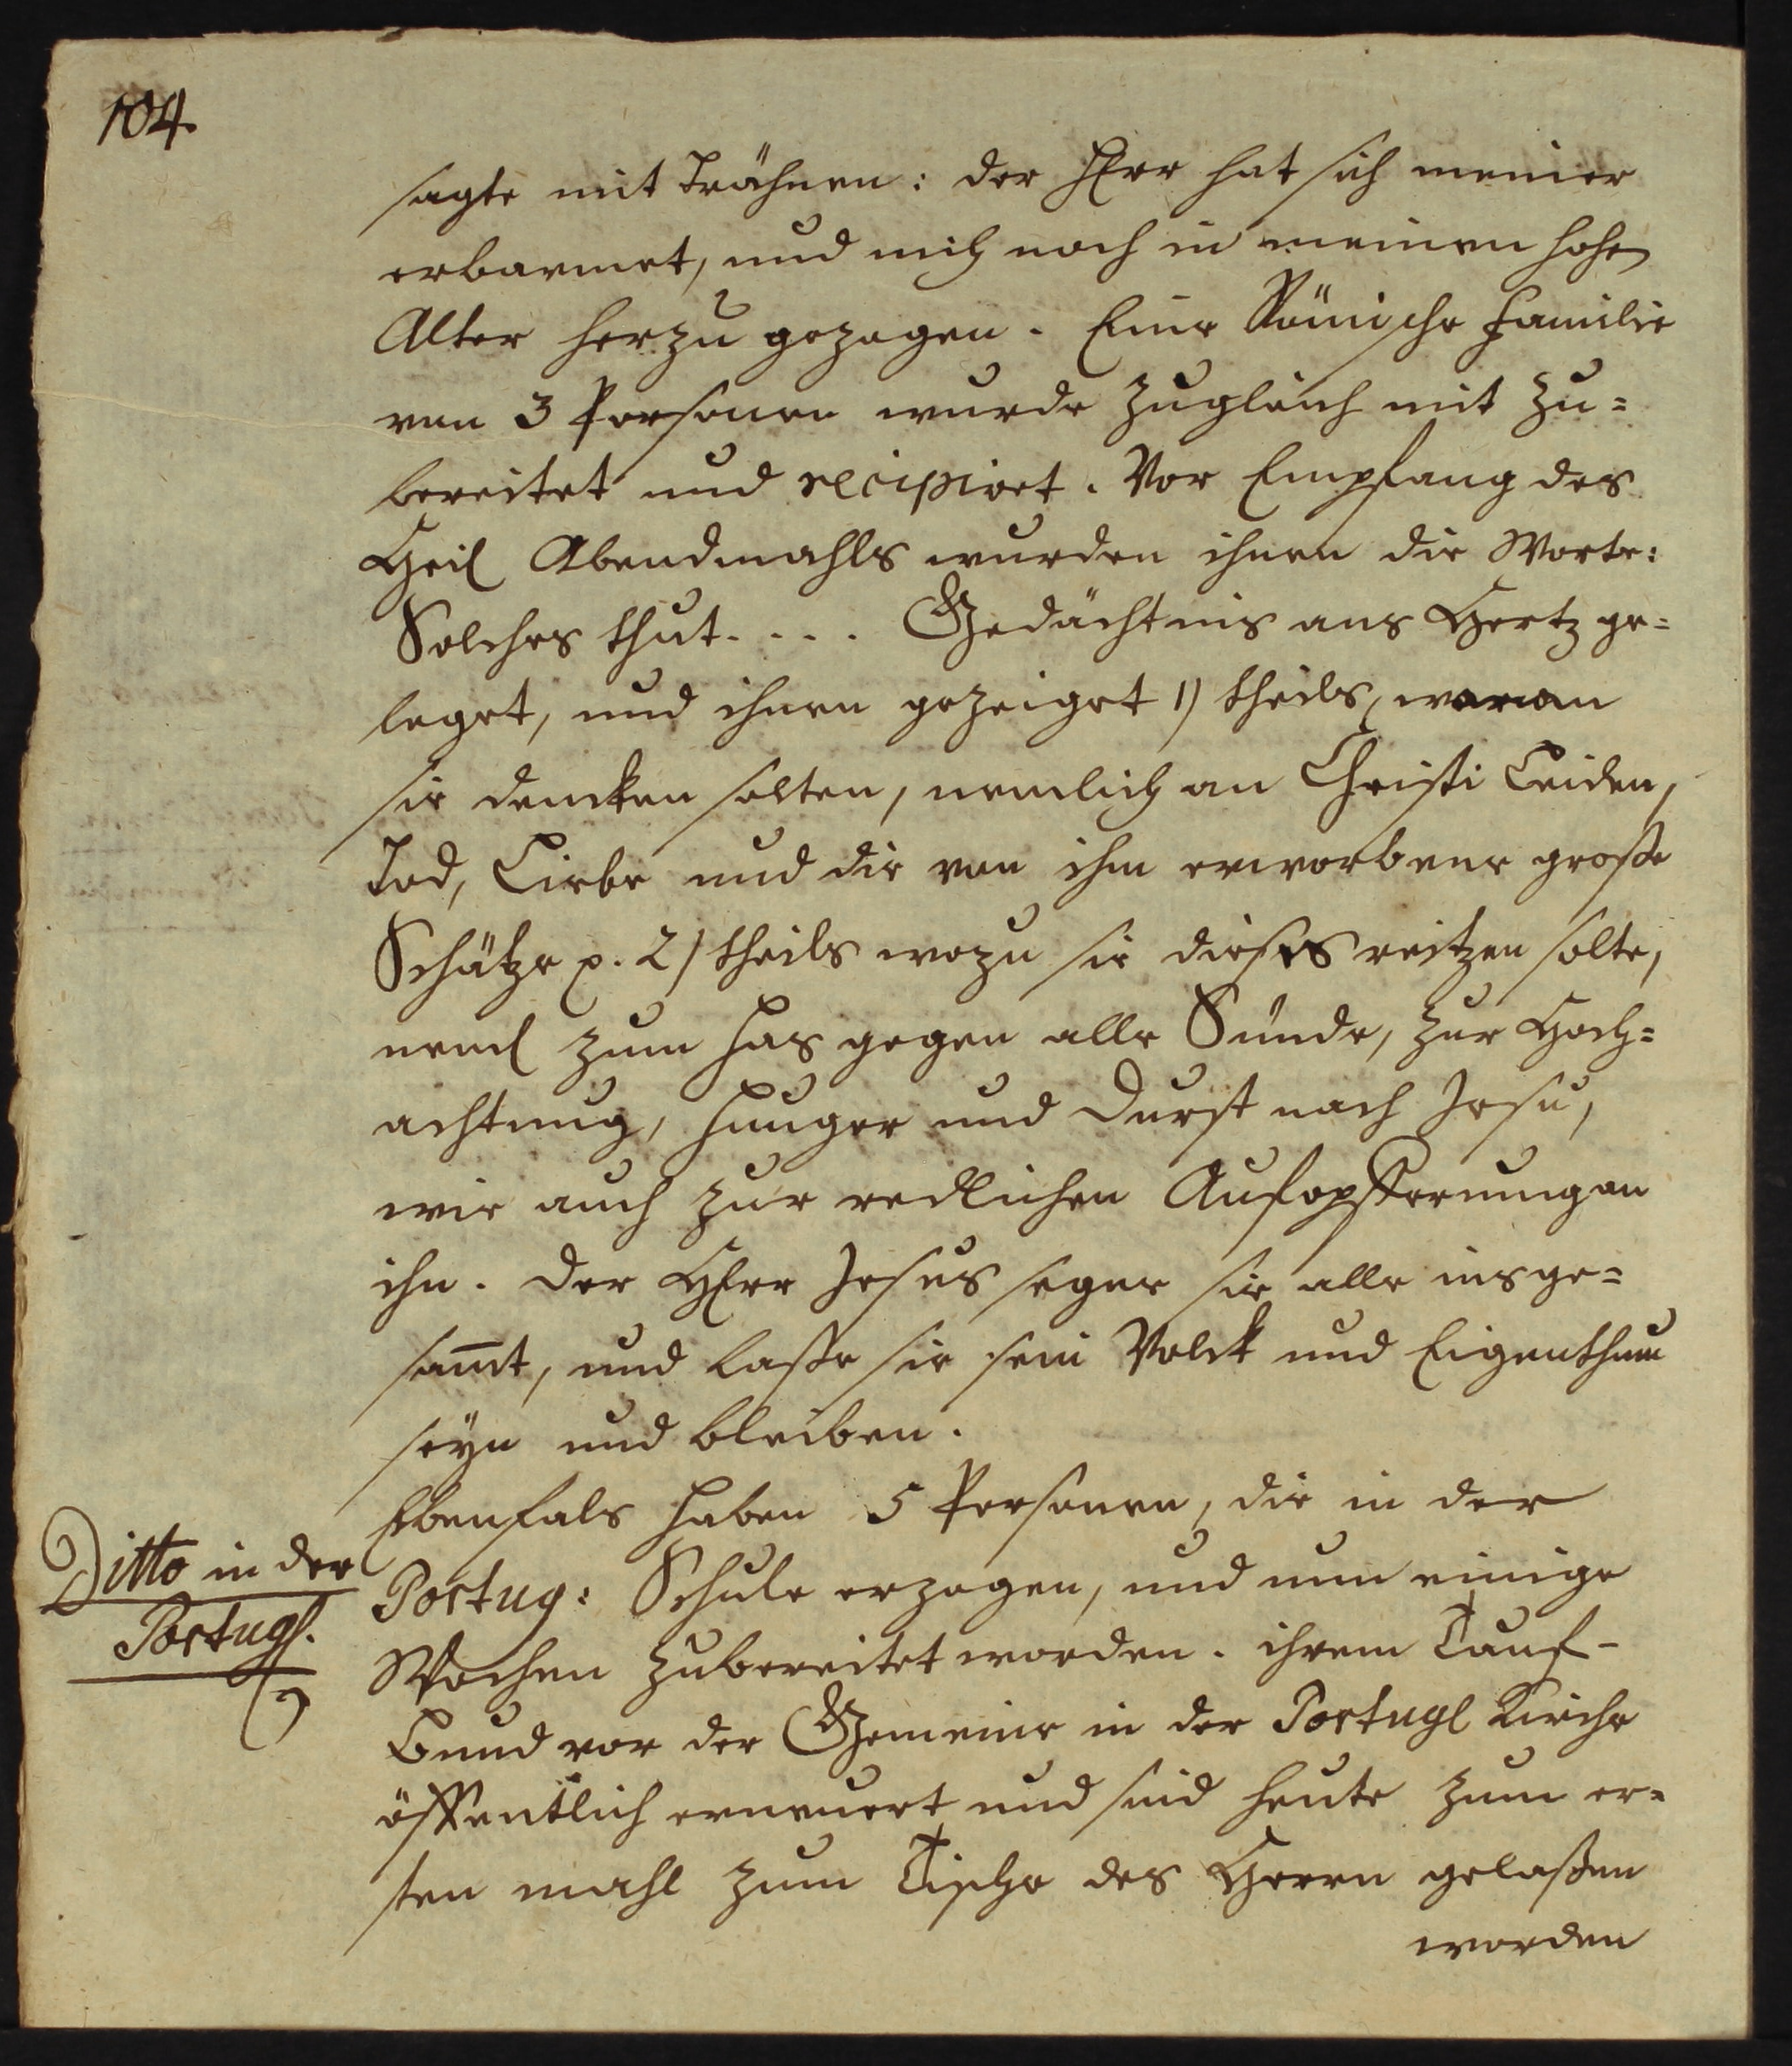 104.
sagte mit Trähnen: der HErr hat sich meiner
erbarmet, und mich noch in meinen hohen
Alter herzu gezogen. Eine Römische Familie
von 3 Personen wurde zugleich mit zu=
bereitet und recipiret. Vor Empfang des
Heil Abendmahls wurden ihnen die Worte:
Solches thut. . . . Gedächtnis ans Hertz ge=
leget, und ihnen gezeiget 1) theils, woran
sie dencken solten, nemlich an Christi Leiden,
Tod, Liebe und die von ihm erworbene große
Schätze p. 2) theils wozu sie dieses reitzen solte,
neml zum Has gegen alle Sünde, zur Hoch=
achtung, Hunger und Durst nach Jesu,
wie auch zur redlichen Aufopfferung an
ihn. Der HErr Jesus segne sie alle insge=
sam̄t, und laße sie sein Volck und Eigenthum
seyn und bleiben.
Ditto in der
Portugl.
Ebenfals haben 5 Personen, die in der
Portug: Schule erzogen, und nun einige
Wochen zubereitet worden. ihrem Tauf-
Bund vor der Gemeine in der Portugl Kirche
öffentlich erneuert und sind heute zum er=
sten mahl zum Tische des Herrn gelaßen
worden